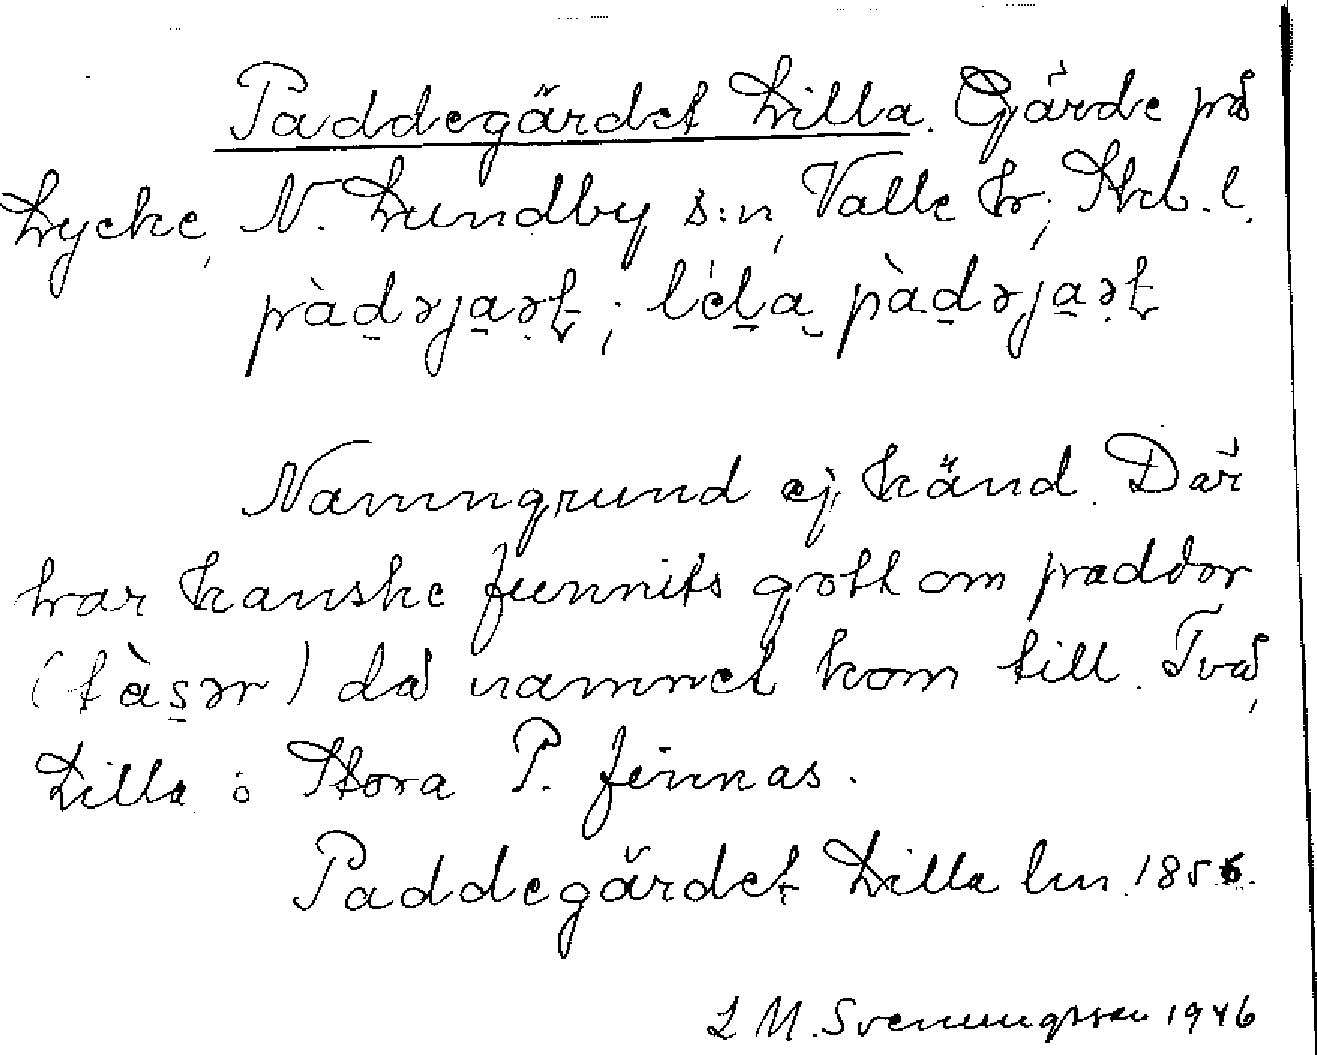 Paddegärdet Lilla. Gärde på
Lycke, N. Lundby s:n, Valle hr; Skb. l.
pàdəjaṛt; léla pàdəjaṛt
Namngrund ej känd. Där
har kanske funnits gott om paddor
(tàsər) då namnet kom till. Två,
Lilla o Stora P. finnas.
Paddegärdet Lilla lm. 1856.
L M. Svenungsson 1946